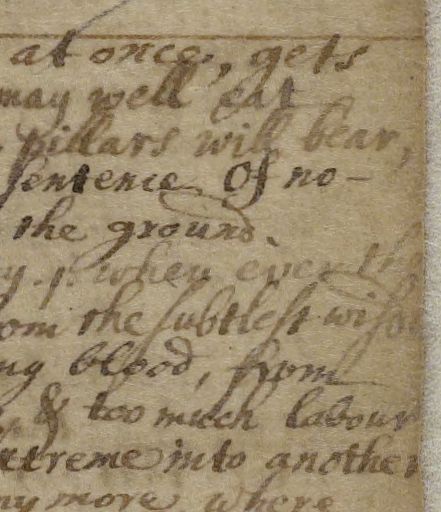 at once, gets
may well eat
pillars will bear,
sentence. Of no-
the ground.
when ever th
om the subtlest wisdo
ng blood, from
& too much labour
xtreme into another
ny more, where